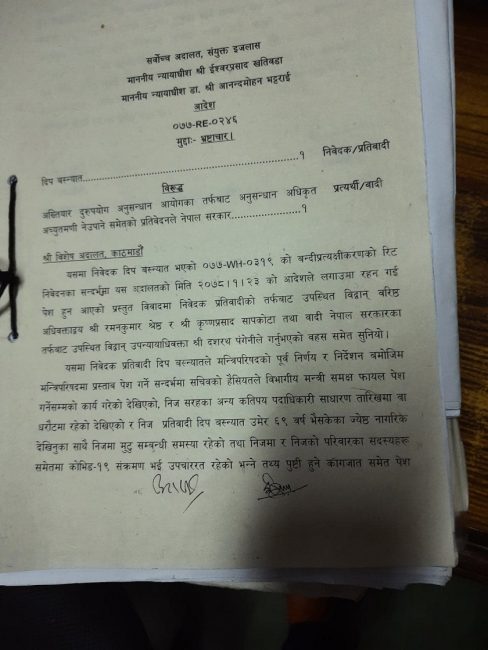 सर्वोच्च अदालत, संयुक्त इजलास
माननीय न्यायाधीश श्री ईश्वरप्रसाद खतिवडा
माननीय न्यायाधीश डा. श्री आनन्दमोहन भट्टराई
आदेश
०७७-RE-०२४६
मुद्दाः- भ्रष्टाचार।
दिप बस्न्यात..................................................१ निवेदक/प्रतिवादी
विरुद्ध
अख्तियार दुरुपयोग अनुसन्धान आयोगका तर्फबाट अनुसन्धान अधिकृत प्रत्यर्थी/वादी
अच्युतमणी नेउपाने समेतको प्रतिवेदनले नेपाल सरकार.................१
श्री विशेष अदालत, काठमाडौँ
यसमा निवेदक दिप बस्न्यात भएको ०७७-WH-०३१९ को बन्दीप्रत्यक्षीकरणको रिट
निवेदनका सन्दर्भमा यस अदालतको मिति २०७८।१।२३ को आदेशले लगाउमा रहन गई
पेश हुन आएको प्रस्तुत विवादमा निवेदक प्रतिवादीको तर्फबाट उपस्थित विद्वान् वरिष्ठ
अधिवक्ताद्वय श्री रमनकुमार श्रेष्ठ र श्री कृष्णप्रसाद सापकोटा तथा वादी नेपाल सरकारका
तर्फबाट उपस्थित विद्वान् उपन्यायाधिवक्ता श्री दशरथ पंगेनीले गर्नुभएको वहस समेत सुनियो।
यसमा निवेदक प्रतिवादी दिप बस्न्यातले मन्त्रिपरिषदको पूर्व निर्णय र निर्देशन बमोजिम
मन्त्रिपरिषदमा प्रस्ताव पेश गर्ने सन्दर्भमा सचिवको हैसियतले विभागीय मन्त्री समक्ष फायल पेश
गर्नेसम्मको कार्य गरेको देखिएको, निज सरहका अन्य कतिपय पदाधिकारी साधारण तारिखमा वा
धरौटमा रहेको देखिएको र निज प्रतिवादी दिप बस्न्यात उमेर ६९ वर्ष भैसकेका ज्येष्ठ नागरिक
देखिनुका साथै निजमा मुटु सम्बन्धी समस्या रहेको तथा निजमा र निजको परिवारका सदस्यहरु
समेतमा कोभिड-१९ संक्रमण भई उपचाररत रहेको भन्ने तथ्य पुष्टी हुने कागजात समेत पेश